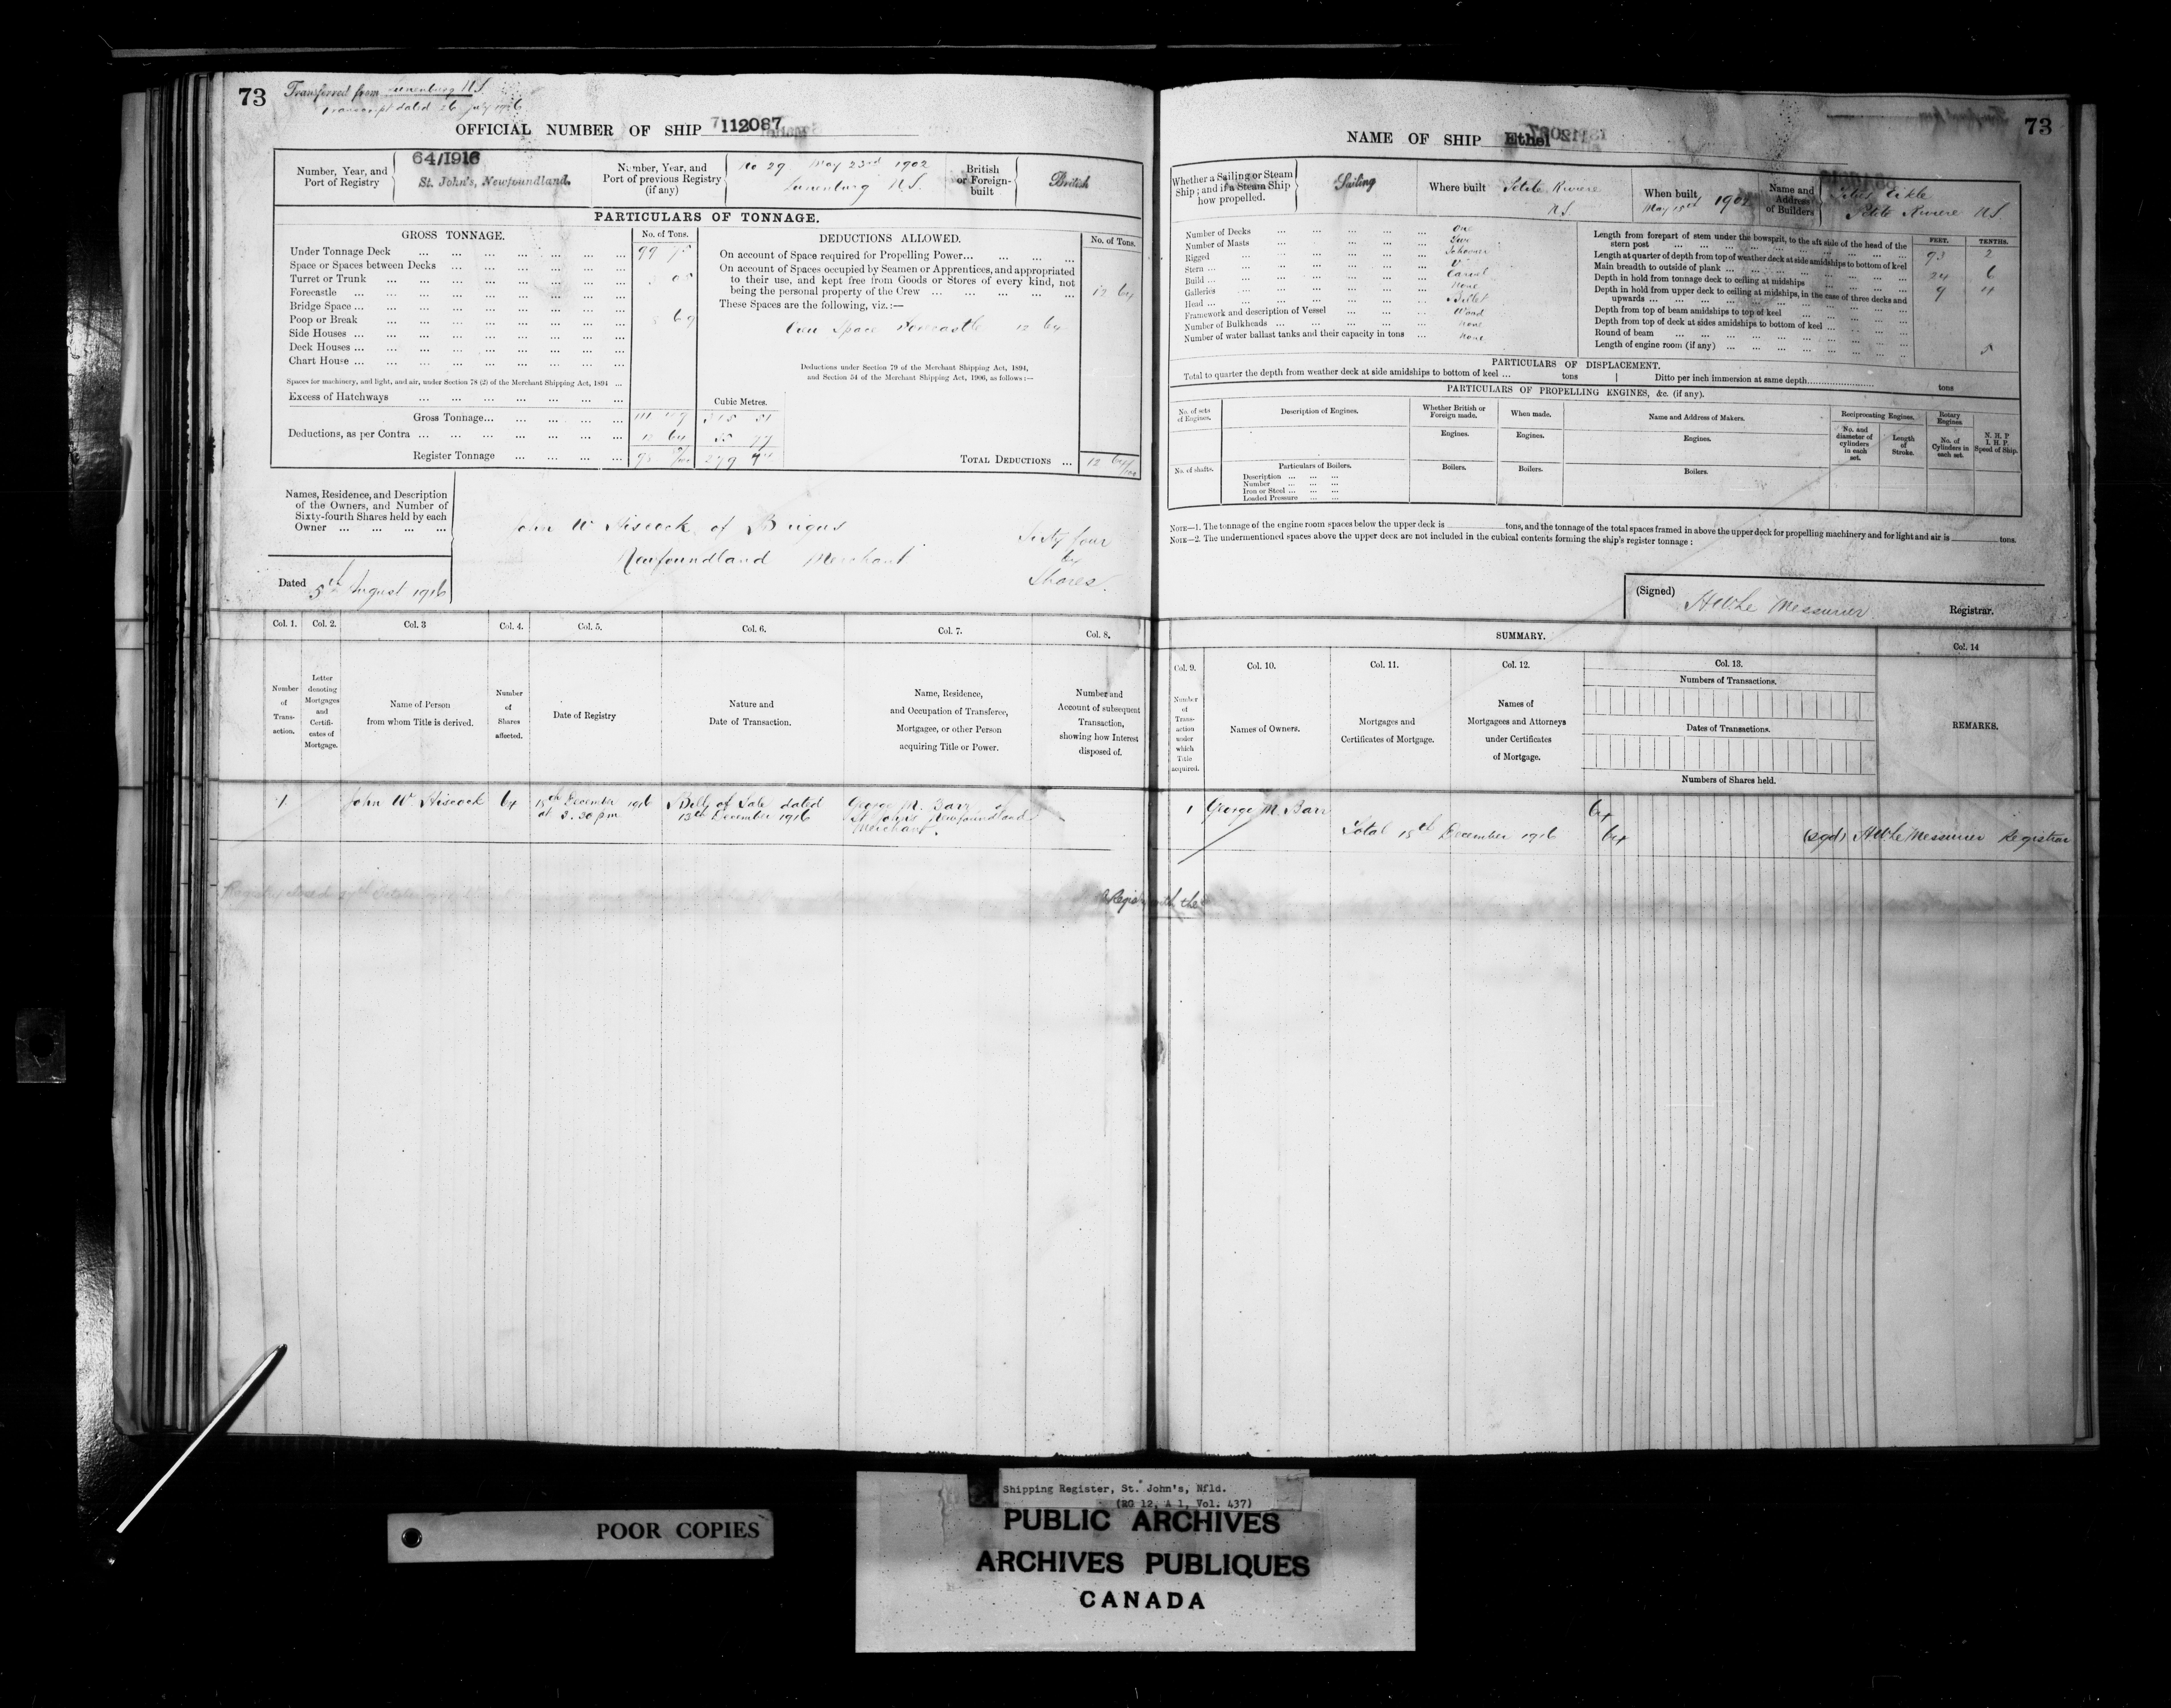 73
Transferred from Lunenburg N.S.
Transcript dated 26 July 1916
OFFICIAL NUMBER OF SHIP 112087
Number, Year, and Port of Registry
64/1916
St. John's, Newfoundland.
Number, Year, and Port of previous Registry (if any)
No 29 May 23rd 1902
Lunenburg N.S.
British or Foreign-built
British
PARTICULARS OF TONNAGE.
GROSS TONNAGE.
No. of Tons.
Under Tonnage Deck ... 99 75
Space or Spaces between Decks ...
Turret or Trunk ... 3 05
Forecastle ...
Bridge Space ...
Poop or Break ... 8 69
Side Houses ...
Deck Houses ...
Chart House ...
Spaces for machinery, and light, and air, under Section 78 (2) of the Merchant Shipping Act, 1894 ...
Excess of Hatchways ...
Cubic Metres.
Gross Tonnage ... 111 49
Deductions, as per Contra ... 12 64
Register Tonnage ... 98
DEDUCTIONS ALLOWED.
No. of Tons.
On account of Space required for Propelling Power ...
On account of Spaces occupied by Seamen or Apprentices, and appropriated
to their use, and kept free from Goods or Stores of every kind, not
being the personal property of the Crew ... 12 64
These Spaces are the following, viz.:—
Crew Space Forecastle 12 64
Deductions under Section 79 of the Merchant Shipping Act, 1894,
and Section 54 of the Merchant Shipping Act, 1906, as follows:—
TOTAL DEDUCTIONS ... 12 64/100
Names, Residence, and Description
of the Owners, and Number of
Sixty-fourth Shares held by each
Owner ...
John W Hiscock of Brigus
Newfoundland Merchant
Sixty four
64
Shares
Dated 5th August 1916
Col. 1. Col. 2. Col. 3 Col. 4. Col. 5. Col. 6. Col. 7. Col. 8.
Number of Transaction.
Letter denoting Mortgages and Certificates of Mortgage.
Name of Person from whom Title is derived.
Number of Shares affected.
Date of Registry
Nature and Date of Transaction.
Name, Residence, and Occupation of Transferee, Mortgagee, or other Person acquiring Title or Power.
Number and Account of subsequent Transaction, showing how Interest disposed of.
1 John W. Hiscock 64 15th December 1916 at 3.30 pm
Bill of Sale dated 13th December 1916
George M. Barr of St. John's Newfoundland Merchant.
73
NAME OF SHIP Ethel
Whether a Sailing or Steam Ship; and if a Steam Ship how propelled.
Sailing
Where built Petite Riviere N.S.
When built May 15th 1902
Name and Address of Builders
Petite Riviere N.S.
Number of Decks ... One
Number of Masts ... Two
Rigged ... Schooner
Stern ...
Build ... Carvel
Galleries ... None
Head ... Billet
Framework and description of Vessel ... Wood
Number of Bulkheads ... None
Number of water ballast tanks and their capacity in tons ... None
FEET. TENTHS.
Length from forepart of stem under the bowsprit, to the aft side of the head of the stern post ... 93 2
Length at quarter of depth from top of weather deck at side amidships to bottom of keel
Main breadth to outside of plank ... 24 6
Depth in hold from tonnage deck to ceiling at midships ... 9 4
Depth in hold from upper deck to ceiling at midships, in the case of three decks and upwards ...
Depth from top of beam amidships to top of keel ...
Depth from top of deck at sides amidships to bottom of keel ...
Round of beam ... 5
Length of engine room (if any) ...
PARTICULARS OF DISPLACEMENT.
Total to quarter the depth from weather deck at side amidships to bottom of keel ... tons
Ditto per inch immersion at same depth ... tons
PARTICULARS OF PROPELLING ENGINES, &c. (if any).
No. of sets of Engines.
Description of Engines.
Whether British or Foreign made.
When made.
Name and Address of Makers.
Reciprocating Engines.
Rotary Engines
No. and diameter of cylinders in each set.
Length of Stroke.
No. of Cylinders in each set.
N. H. P I. H. P. Speed of Ship.
Engines. Engines. Engines.
No. of shafts.
Particulars of Boilers.
Boilers. Boilers. Boilers.
Description ...
Number ...
Iron or Steel ...
Loaded Pressure ...
NOTE—1. The tonnage of the engine room spaces below the upper deck is ... tons, and the tonnage of the total spaces framed in above the upper deck for propelling machinery and for light and air is ... tons.
NOTE—2. The undermentioned spaces above the upper deck are not included in the cubical contents forming the ship's register tonnage:
(Signed) H W Le Messurier Registrar.
SUMMARY.
Col. 9. Col. 10. Col. 11. Col. 12. Col. 13. Col. 14
Number of Transaction under which Title acquired.
Names of Owners.
Mortgages and Certificates of Mortgage.
Names of Mortgagees and Attorneys under Certificates of Mortgage.
Numbers of Transactions.
Dates of Transactions.
Numbers of Shares held.
REMARKS.
1 George M. Barr 64
Total 15th December 1916 64 (sgd) H W Le Messurier Registrar
Shipping Register, St. John's, Nfld.
(RG 12, A 1, Vol. 437)
POOR COPIES
PUBLIC ARCHIVES
ARCHIVES PUBLIQUES
CANADA